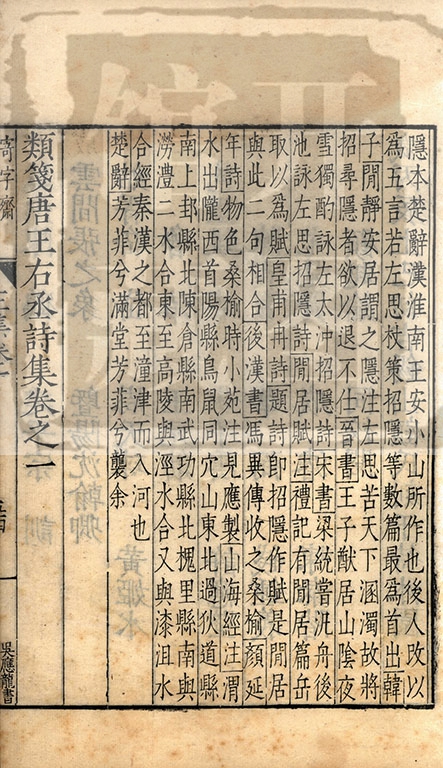 隱本楚辭漢淮南王安小山所作也後人改以
爲五言若左思杖策招隱等數篇最爲首出韓
子閒靜安居謂之隱注左思苦天下溷濁故將
招尋隱者欲以退不仕晉書王子猷居山陰夜
雪獨酌詠左太沖招隱詩宋書梁統嘗汎舟後
池詠左思招隱詩閒居賦注禮記有閒居篇岳
取以爲賦皇甫冉詩題詩即招隱作賦是閒居
與此二句相合後漢書馮異傳收之桑榆顏延
年詩物色桑榆時小苑注見應製山海經注渭
水出隴西首陽縣鳥鼠同穴山東北過狄道縣
南上邽縣北陳倉縣南武功縣北槐里縣南與
澇灃二水合東至高陵與涇水合又與漆沮水
合經秦漢之都至潼津而入河也
楚辭芳菲兮滿堂芳菲兮襲余
類箋唐王右丞詩集卷之一
奇字齋
吳應龍書
雲間張之象
暨陽沈翰卿
黃姬水